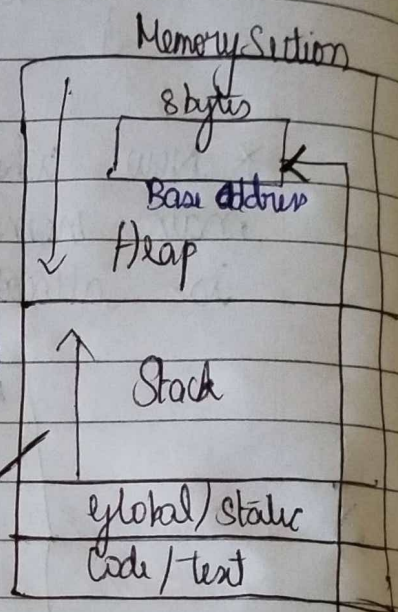 Memory Section
8 bytes
Base address
Heap
Stack
global/static
Code/text